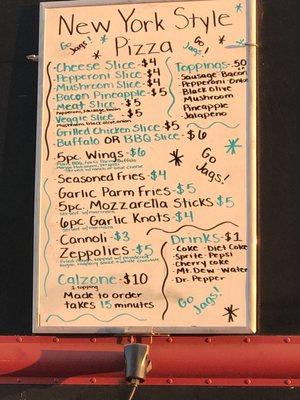 New York Style
Pizza
Go Jags!
Go Jags!
Cheese Slice - $4
Pepperoni Slice - $4
Mushroom Slice - $4
Bacon Pineapple - $5
Meat Slice - $5
Pepperoni, sausage, bacon
Veggie Slice - $5
mushroom, black olive, onion
Grilled Chicken Slice $5
Buffalo OR BBQ Slice - $6
Toppings - .50
Sausage Bacon
Pepperoni Onion
Black Olive
Mushroom
Pineapple
Jalapeno
5pc. Wings - $6
Served w/ ranch or bleu cheese
Go
Jags!
Seasoned Fries $4
Garlic Parm Fries - $5
5pc. Mozzarella Sticks $5
Served w/ marinara
6pc Garlic Knots $4
Served w/ marinara
Cannoli - $3
Zeppolies - $5
Fried dough topped w/ powdered
Calzone - $10
1 topping
Made to order
takes 15 minutes
Drinks - $1
Coke Diet Coke
Sprite Pepsi
Cherry Coke
Mt. Dew - Water
Dr. Pepper
Go
Jags!